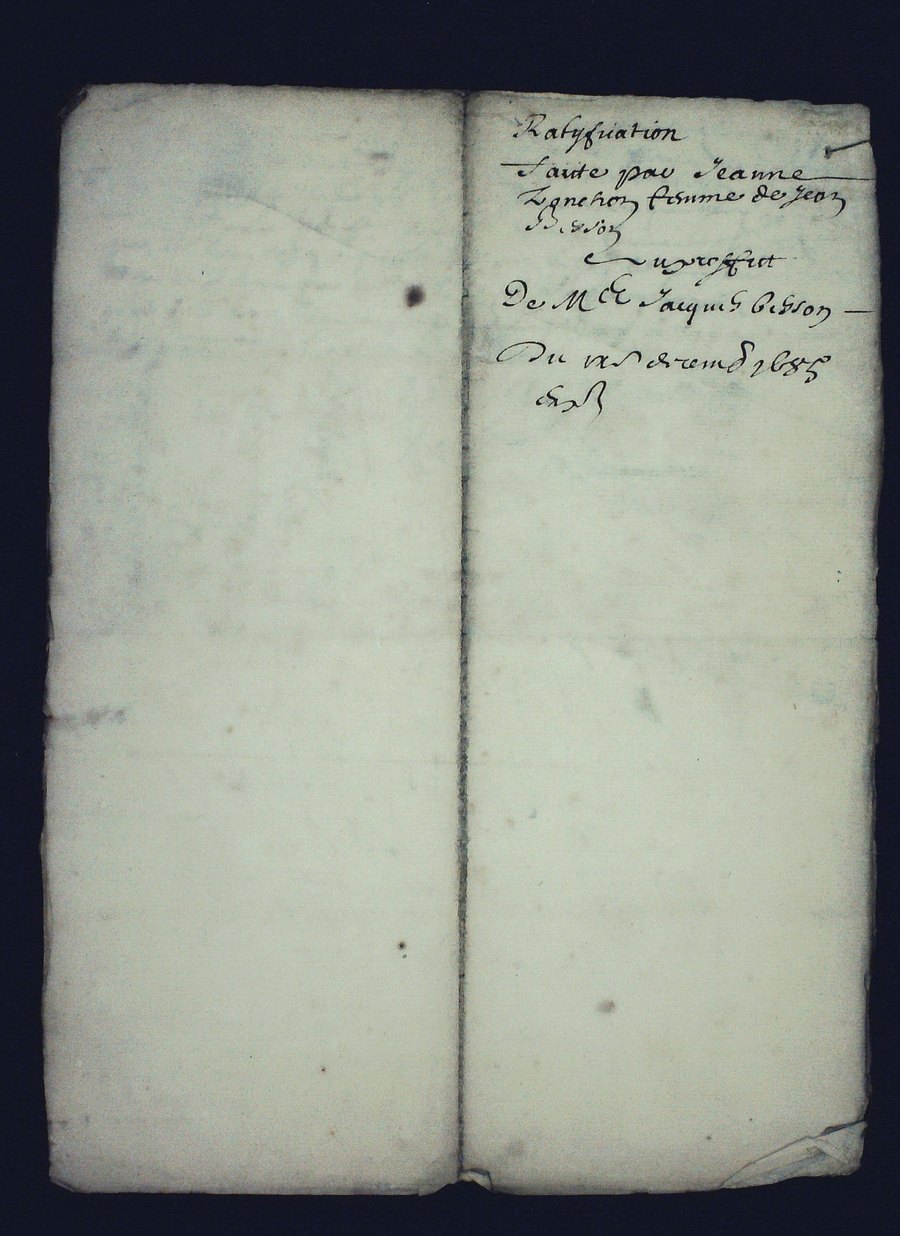 Ratyfication
Faitte par Jeanne
femme de Jean
Besson
Au proffict
De Mre Jacques besson
Du decemb 1685